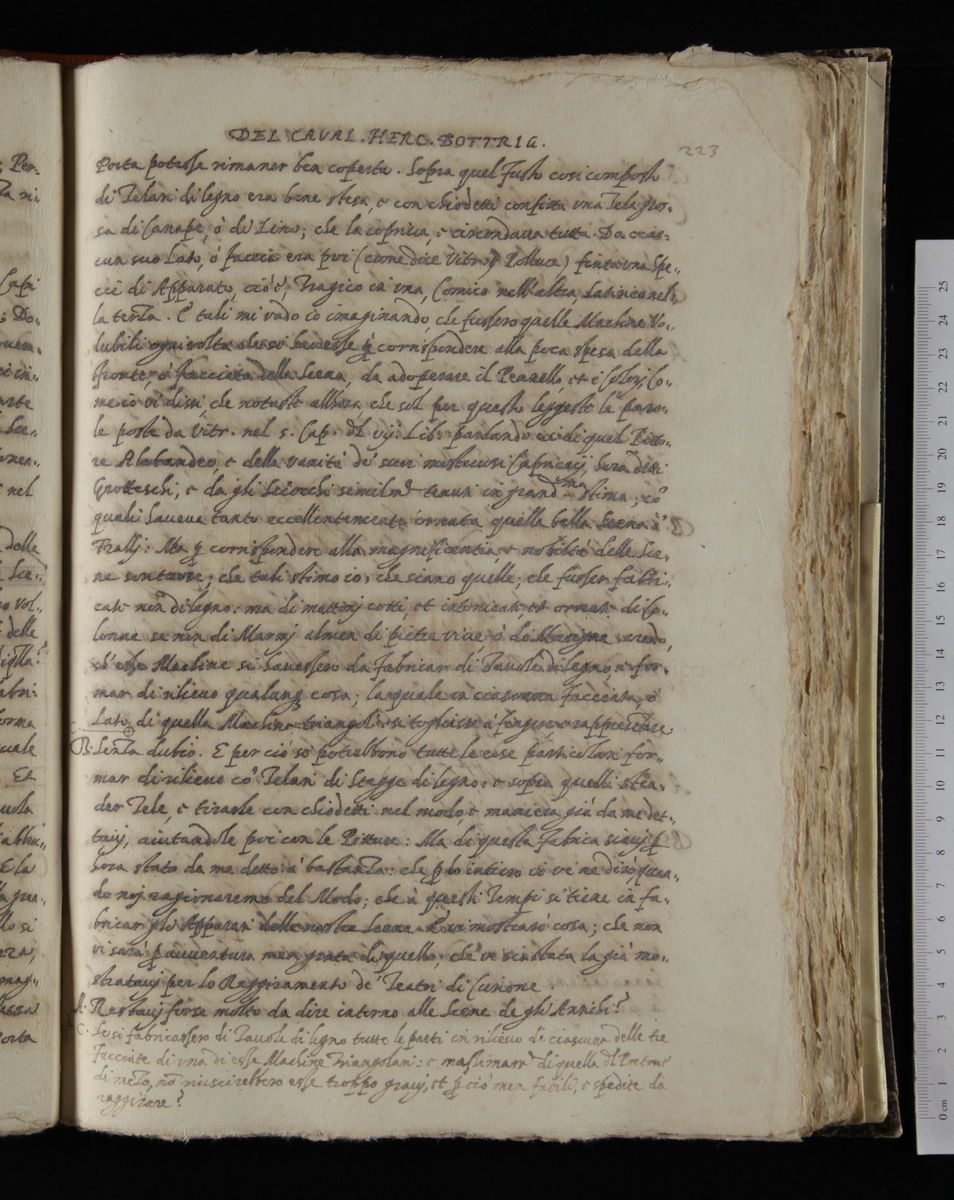 DEL CAVAL. HERC. BOTTRIG.
223
Porta potesse rimaner ben coperta. Sopra quel fusto cosi composto
di Telari di legno era bene stesa, e con chiodetti confitta vna Tela gros-
sa di Canape, ò di Lino; che la copriua, e circondaua tutta. Da ciascu-
cun suo Lato, ò faccia era poi (come dice Vitr. e Polluce) finta vna spe-
cie di Apparato, ciò è, Tragico in vna, Comico nell'altra, Satirico nel-
la terza. E tali mi vado io imaginando, che fussero quelle Machine Vo-
lubili ogni volta che si hauesse à corrispondere alla poca spesa della
fronte, ò facciata della Scena, da adoperare il Penello, et i Colori, Co-
me io vi dissi, che notaste allhora che sol per questo leggeste le paro-
le poste da Vitr. nel 5. Cap. del vij. Lib. parlando ei di quel Pitto-
re Alabandeo, e della vanità de' suoi mostruosi Capricij, hora detti
Grotteschi, e da gli Sciocchi tenuti in grandma stima; co'
quali haueua tanto eccellentemente ornata quella bella Scena à
Tralli: Ma p corrispondere alla magnificentia, e nobiltà delle Sce-
ne; che tali stimo io, che siano quelle; che fusser fabri-
cate non di legno: ma di mattoni cotti, et intonicati, et ornati di Co-
lonne se non di Marmi almen di pietra viua, ò di Macigne
ch'esse Machine si hauessero da fabricar di Tauole di legno, e for-
mar di rilieuo qualunq cosa; la quale in ciascuna facciata, ò
Lato di quella Machina triangolare si togliesse à fingere, e rappresentare
B. Senza dubio. E per ciò si potrebbono tutte le cose particolari for-
mar di rilieuo co' Telari di Stagge di legno: e sopra quelli sten-
der Tele, e tirarle con chiodetti nel modo, e maniera già da me det-
taui, aiutandole poi con le Pitture: Ma di questa fabrica siaui p
hora stato da me detto à bastanza: che p lo intiero io ve ne dirò, quan-
do noi ragionaremo del Modo; che à questi Tempi si tiene in fa-
bricar gli Apparati delle nostre Scene. E vi mostrarò cosa; che non
vi sarà p auuentura men grata di quello, che ve sia stata la già mo-
strataui per lo Raggiramento de' Teatri di Curione.
A. Restaui forse molto da dire intorno alle Scene de gli Antichi?
C. Se si fabricassero di Tauole di legno tutte le parti in rilieuo di ciascuna delle tre
facciate di vna di esse Machine triangolari: e massimamte di quella
di mezo, nō riuscirebbero esse troppo graui, et p ciò men facili, e spedite da
raggirare?